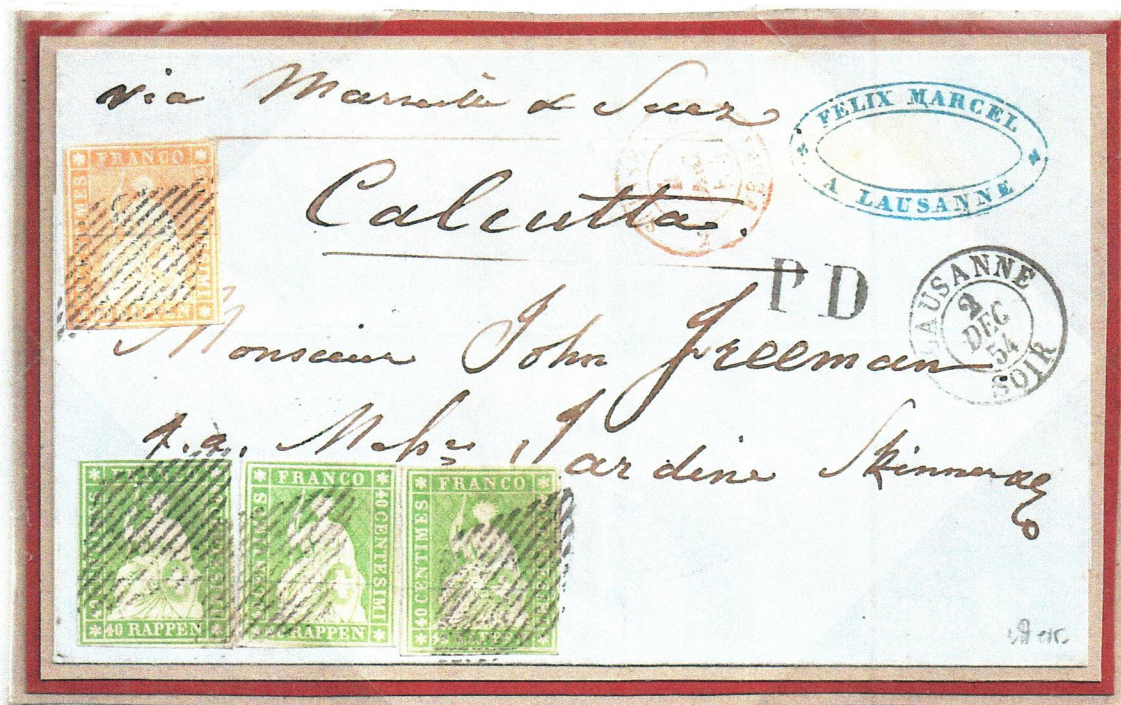 via Marseille & Suez
FELIX MARCEL
A LAUSANNE
FRANCO
CENTIMES
Calcutta.
PD
LAUSANNE
2
DEC
54
SOIR
Monsieur John Freeman
Jardine Skinner & Co
FRANCO
40 RAPPEN
FRANCO
40 CENTESIMI
CENTIMES
RAPPEN
FRANCO
40 CENTIMES
RAPPEN